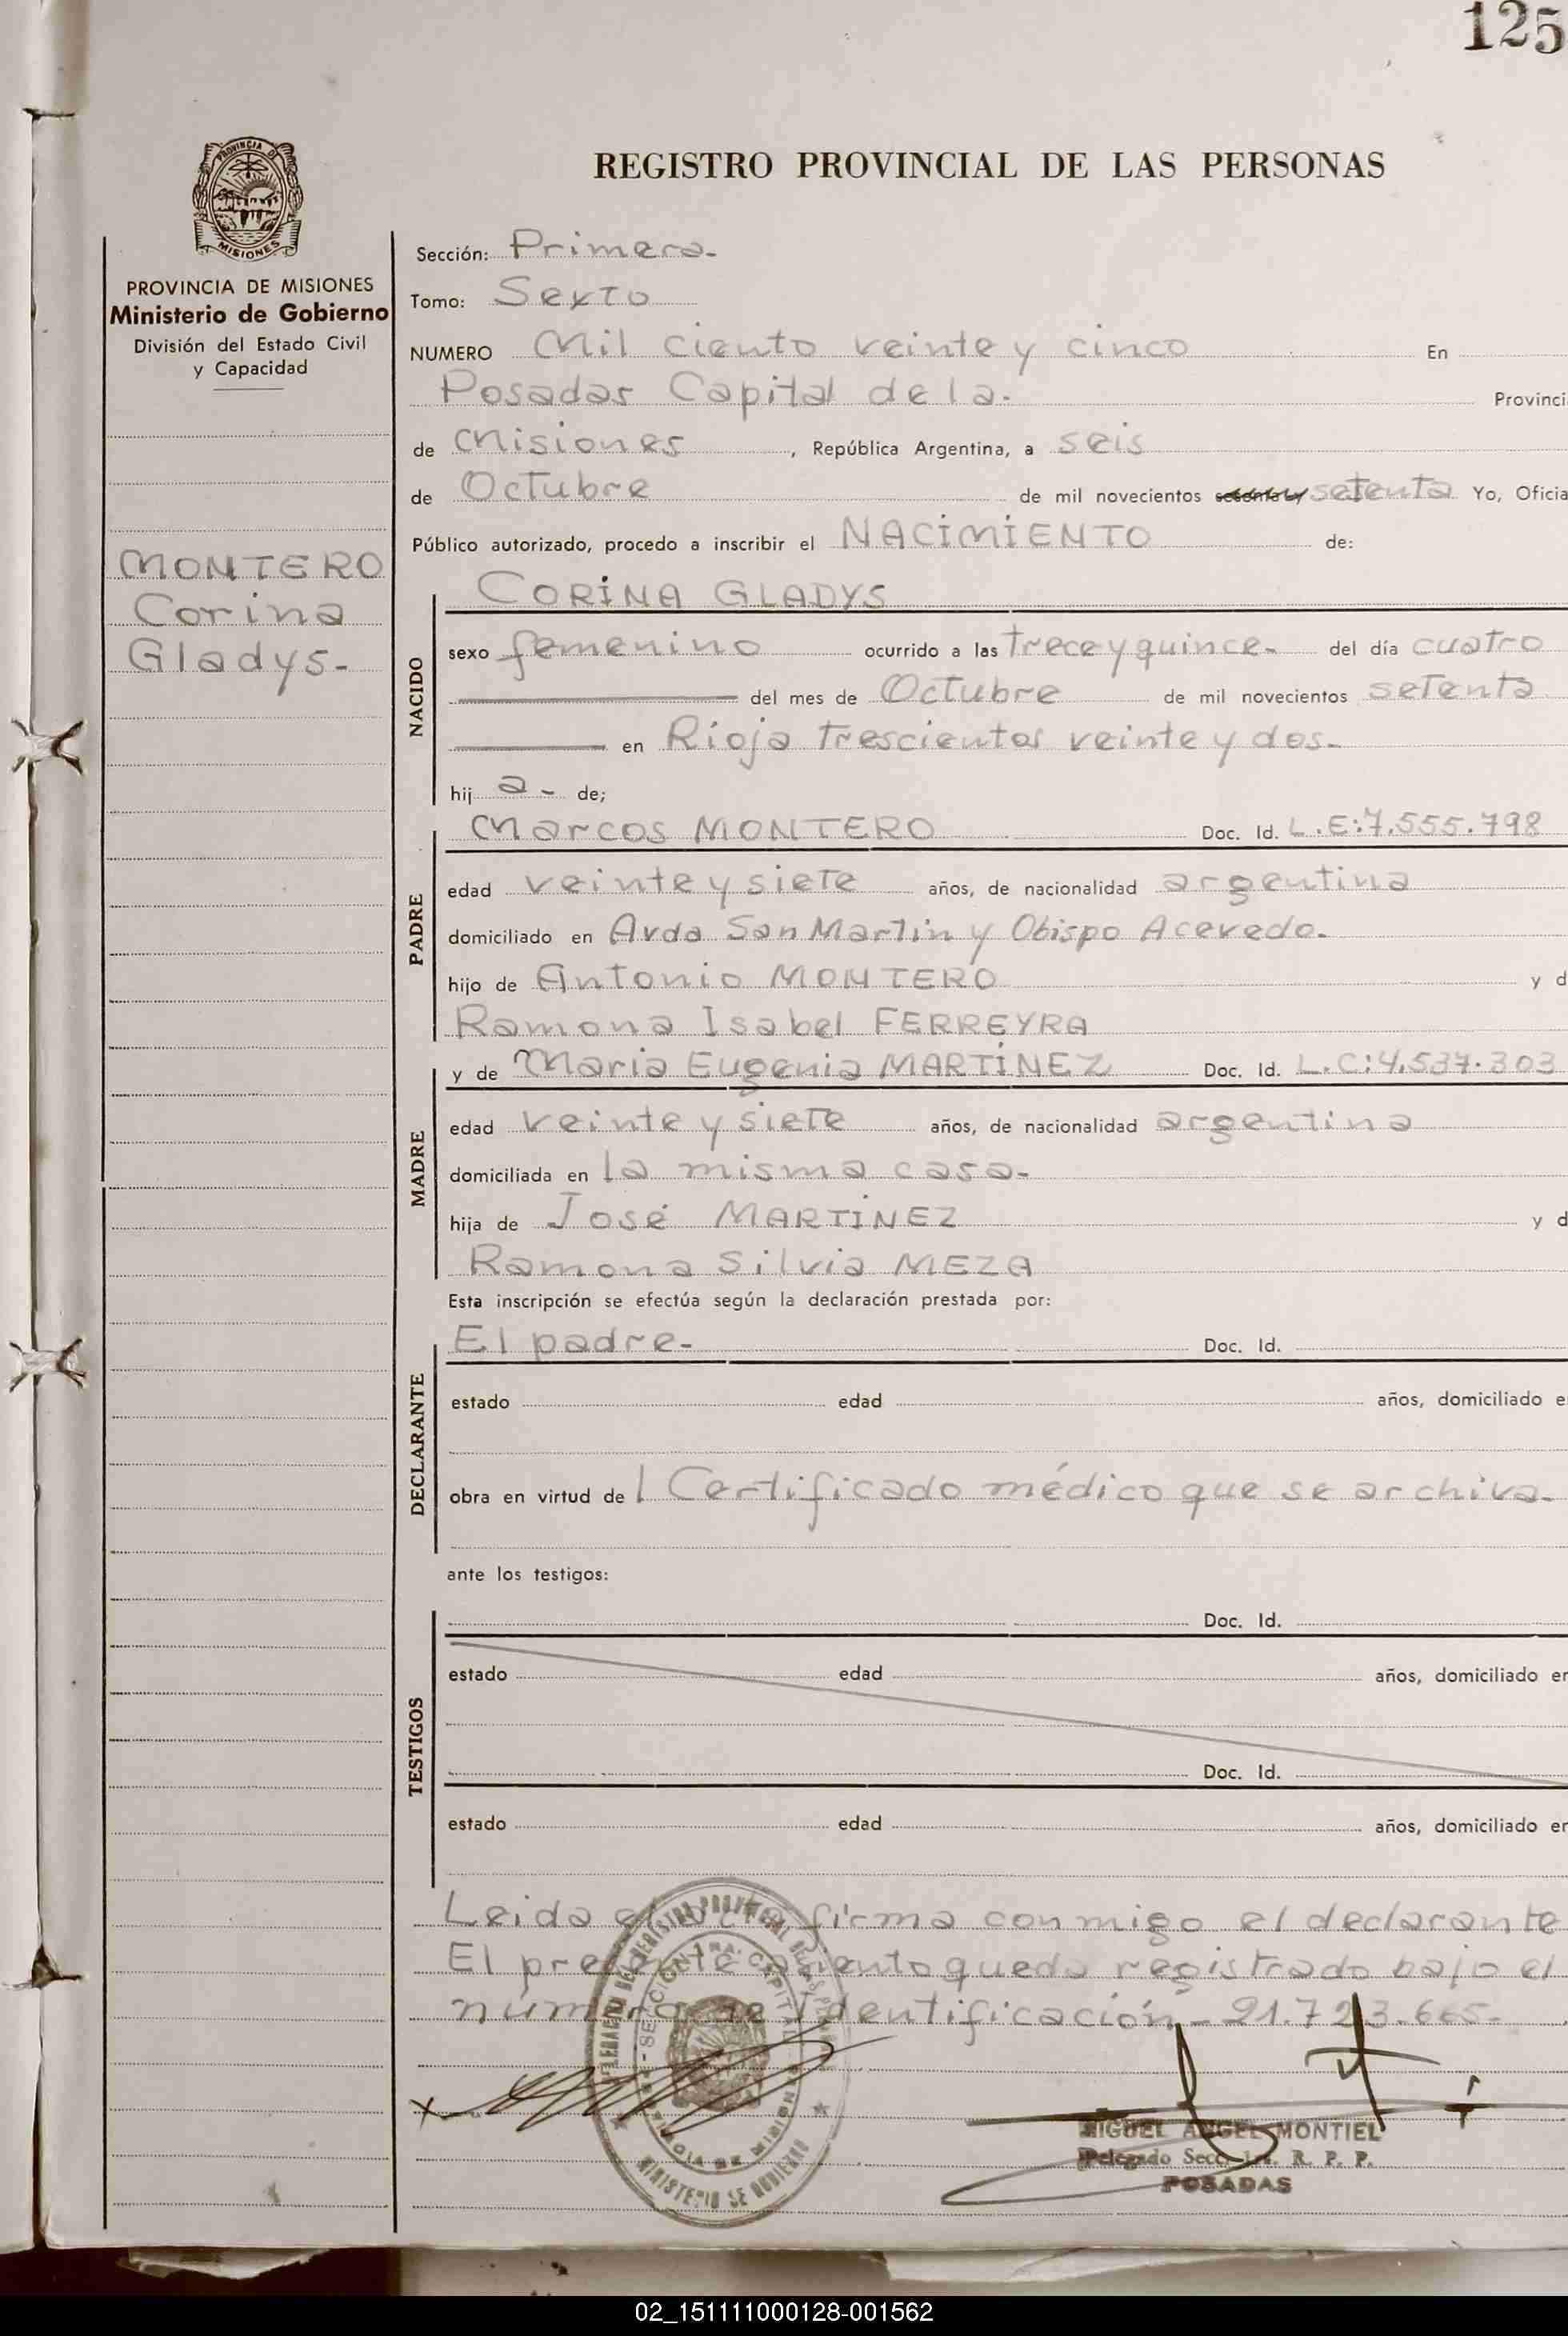 125
REGISTRO PROVINCIAL DE LAS PERSONAS
PROVINCIA DE
MISIONES
PROVINCIA DE MISIONES
Ministerio de Gobierno
División del Estado Civil
y Capacidad
MONTERO
Corina
Gladys.-
Sección: Primera.
Tomo: Sexto
NUMERO Mil ciento veinte y cinco En
Posadas Capital de la. Provinci
de Misiones, República Argentina, a seis
de Octubre de mil novecientos setenta Yo, Oficia
Público autorizado, procedo a inscribir el NACIMIENTO de:
CORINA GLADYS
NACIDO
sexo femenino ocurrido a las trece y quince.- del día cuatro
del mes de Octubre de mil novecientos setenta
en Rioja trescientos veinte y dos.-
hij a- de;
Marcos MONTERO Doc. Id. L.E:7.555.798
PADRE
edad veinte y siete años, de nacionalidad argentina
domiciliado en Avda San Martin y Obispo Acevedo.
hijo de Antonio MONTERO y d
Ramona Isabel FERREYRA
y de Maria Eugenia MARTINEZ Doc. Id. L.C:4.537.303
MADRE
edad veinte y siete años, de nacionalidad argentina
domiciliada en la misma casa.
hija de José MARTINEZ y d
Ramona Silvia MEZA
Esta inscripción se efectúa según la declaración prestada por:
El padre.- Doc. Id.
DECLARANTE
estado edad años, domiciliado e
obra en virtud de l Certificado médico que se archiva.
ante los testigos:
Doc. Id.
TESTIGOS
estado edad años, domiciliado en
Doc. Id.
estado edad años, domiciliado en
Leida el firma conmigo el declarante
El presente asiento queda registrado bajo el
número de Identificación.- 21.723.665.-
MINISTERIO DE GOBIERNO
MIGUEL ANGEL MONTIEL
Delegado Secc. 1ra. R. P. P.
POSADAS
02_151111000128-001562